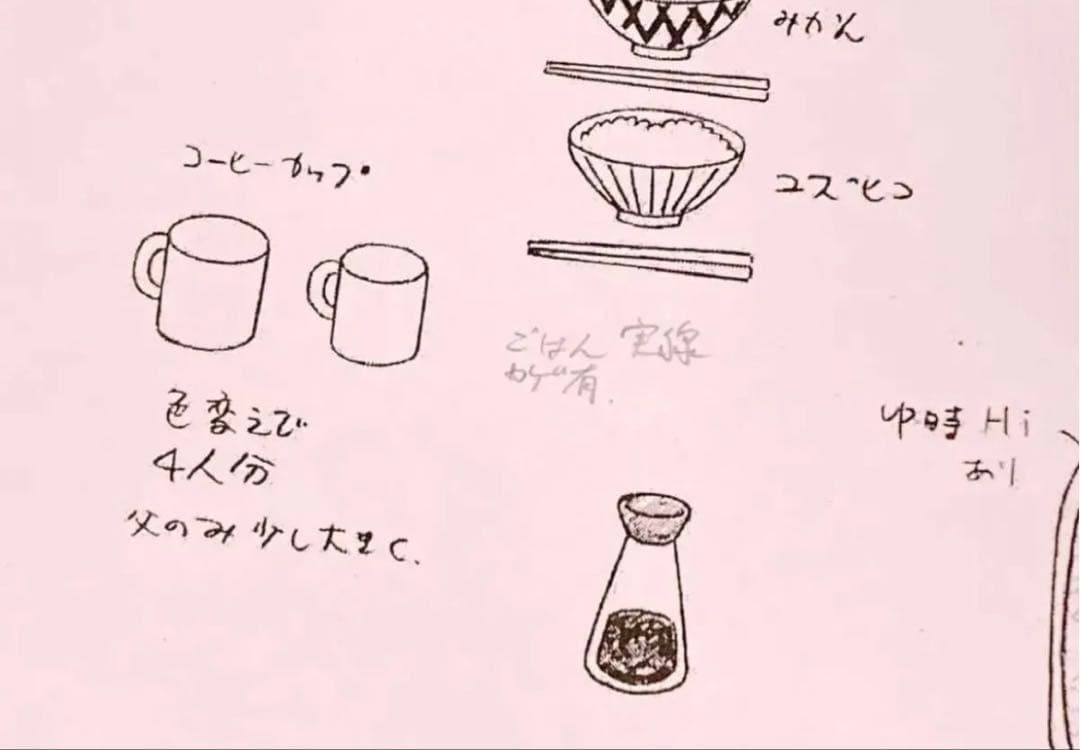 みかん
コーヒーカップ
ユズヒコ
ごはん 実線
カゲ有.
色変えで
4人分
父のみ少し大きく.
時 Hi
あり